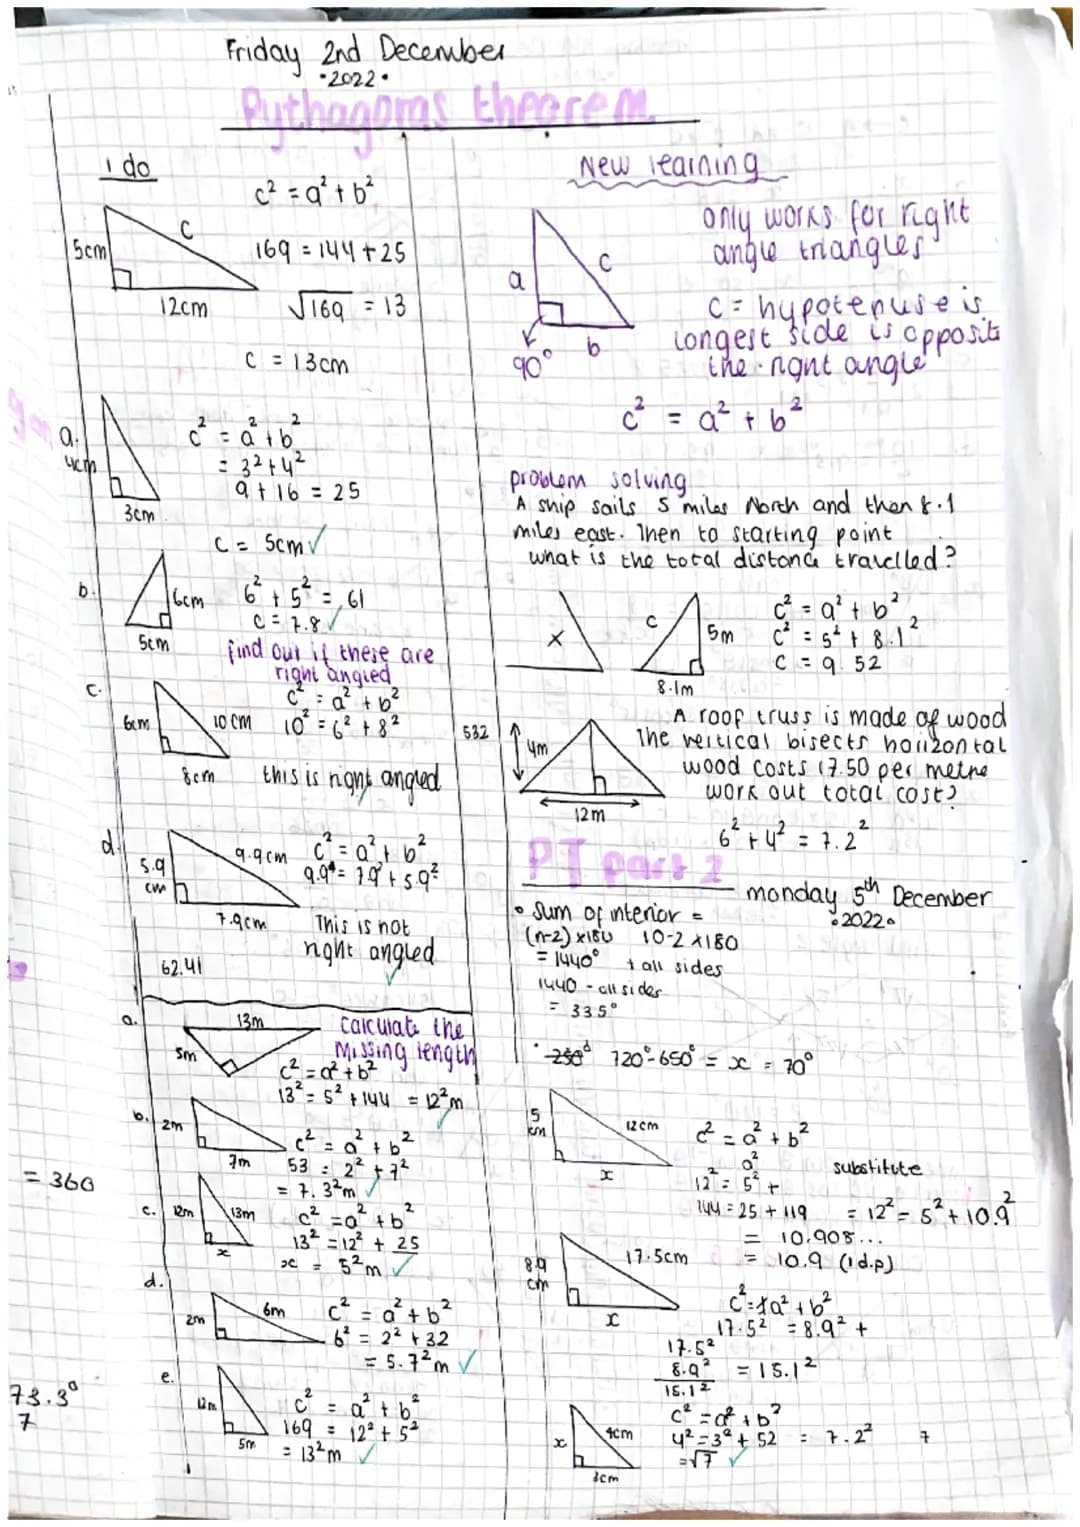 Friday 2nd December
•2022•
Pythagoras theorem
I do
c² = a² + b²
5cm
c
12cm
169 = 144 + 25
√169 = 13
c = 13cm
a.
4cm
3cm
c² = a² + b²
= 3² + 4²
9 + 16 = 25
c = 5cm ✓
b.
6cm
5cm
6² + 5² = 61
c = 7.8 ✓
find out if these are
right angled
c.
6cm
10cm
8cm
c² = a² + b²
10² = 6² + 8²
this is right angled
d.
5.9
cm
9.9cm
7.9cm
c² = a² + b²
9.9² = 7.9² + 5.9²
This is not
right angled ✓
62.41
calculate the
missing length
a.
13m
5m
c² = a² + b²
13² = 5² + 144 = 12²m ✓
b.
2m
7m
c² = a² + b²
53 = 2² + 7²
= 7.3²m ✓
= 360
c.
12m
13m
x
c² = a² + b²
13² = 12² + 25
x = 5²m ✓
d.
2m
6m
c² = a² + b²
6² = 2² + 32
= 5.7²m ✓
73.3°
7
e.
12m
5m
c² = a² + b²
169 = 12² + 5²
= 13²m ✓
New learning
a
c
b
90°
only works for right
angle triangles
c = hypotenuse is
longest side is opposite
the right angle
c² = a² + b²
problem solving
A ship sails 5 miles North and then 8.1
miles east. Then to starting point
what is the total distance travelled?
x
c
5m
8.1m
c² = a² + b²
c² = 5² + 8.1²
c = 9.52
532
4m
12m
A roof truss is made of wood
The vertical bisects horizontal
wood costs 17.50 per metre
work out total cost?
6² + 4² = 7.2²
PT part 2
monday 5th December
•2022•
• Sum of interior =
(n-2)×180 10-2×180
= 1440° + all sides
1440 - all sides
= 335°
• 250° 720° - 650° = x = 70°
5
cm
12cm
x
c² = a² + b²
a²
substitute
12² = 5² +
144 = 25 + 119 = 12² = 5² + 10.9²
= 10.908...
= 10.9 (1d.p)
8.9
cm
17.5cm
x
c² = a² + b²
17.5² = 8.9² +
17.5²
8.9² = 15.1²
15.1²
x
4cm
3cm
c² = a² + b²
4² = 3² + 52 = 7.2² 7
= √7 ✓